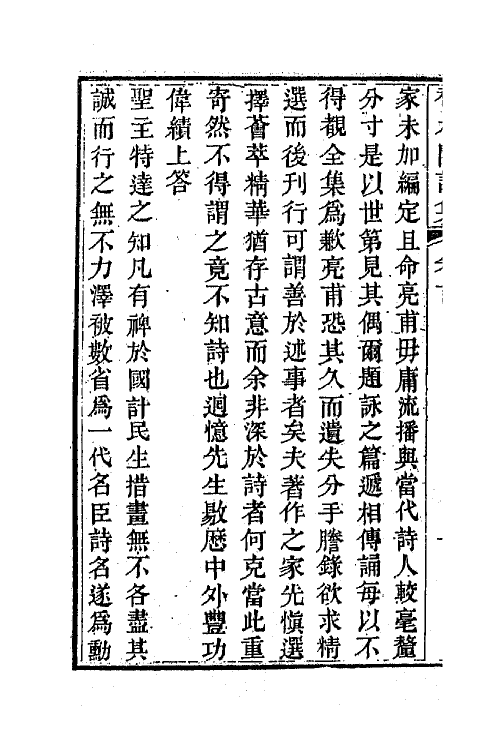 家未加編定且命亮甫毋庸流播與當代詩人較毫釐
分寸是以世第見其偶爾題詠之篇遞相傳誦每以不
得觀全集爲歉亮甫恐其久而遺失分手謄錄欲求精
選而後刊行可謂善於述事者矣夫著作之家先愼選
擇薈萃精華猶存古意而余非深於詩者何克當此重
寄然不得謂之竟不知詩也迴憶先生敭歷中外豐功
偉績上答
聖主特達之知凡有裨於國計民生措畫無不各盡其
誠而行之無不力澤被數省爲一代名臣詩名遂爲勳